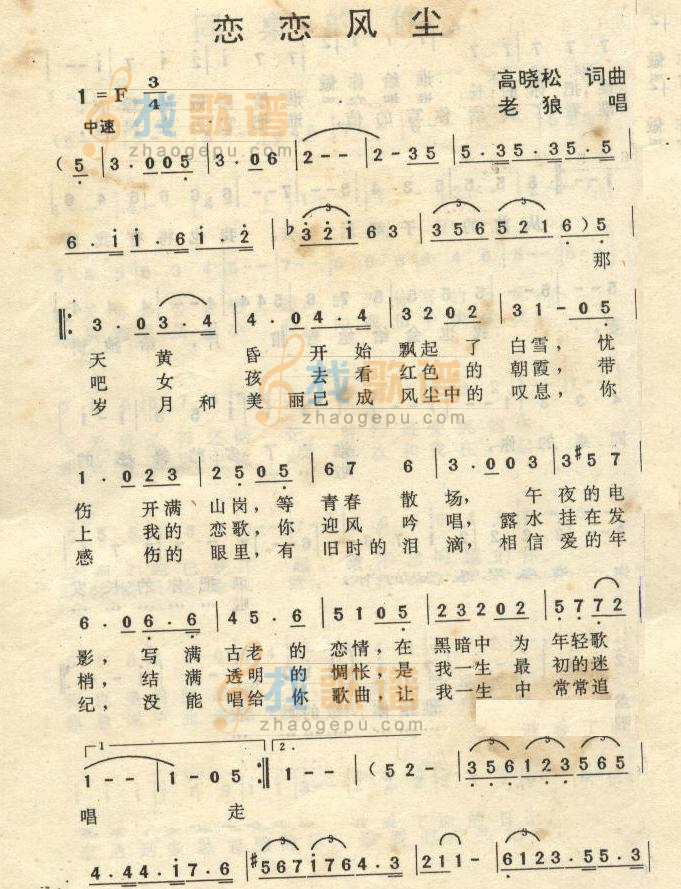 恋恋风尘
1=F 3/4
高晓松 词曲
中速
老狼 唱
找歌谱
zhaogepu.com
(5 | 3·005 | 3·06 | 2-- | 2-35 | 5·35·35·5
6·i i·6 i·2 | ♭3 2 i 6 3 | 3 5 6 5 2 1 6) 5
那
3·03·4 | 4·04·4 | 3202 | 31-05
天 黄 昏 开 始 飘起 了 白雪, 忧
吧 女 孩 去 看 红色 的 朝霞, 带
岁 月 和 美 丽已 成 风尘中的 叹息, 你
找歌谱
zhaogepu.com
1·023 | 2505 | 67 6 | 3·003 | 3#57
伤 开满 山岗, 等 青春 散 场, 午 夜的 电
上 我的 恋歌, 你 迎风 吟 唱, 露 水 挂 在 发
感 伤的 眼里, 有 旧时的泪 滴, 相信 爱的 年
6·06·6 | 45·6 | 5105 | 23202 | 5772
影, 写 满 古老 的 恋情, 在 黑暗中 为 年轻歌
梢, 结 满 透明 的 惆怅, 是 我一生 最 初的迷
纪, 没 能 唱给 你 歌曲, 让 我一生 中 常常追
找歌谱
zhaogepu.com
1 2.
1-- | 1-05 :| 1-- | (52- | 356123565
唱 走
4·44·i7·6 | #567i764·3 | 211- | 6123·55·3